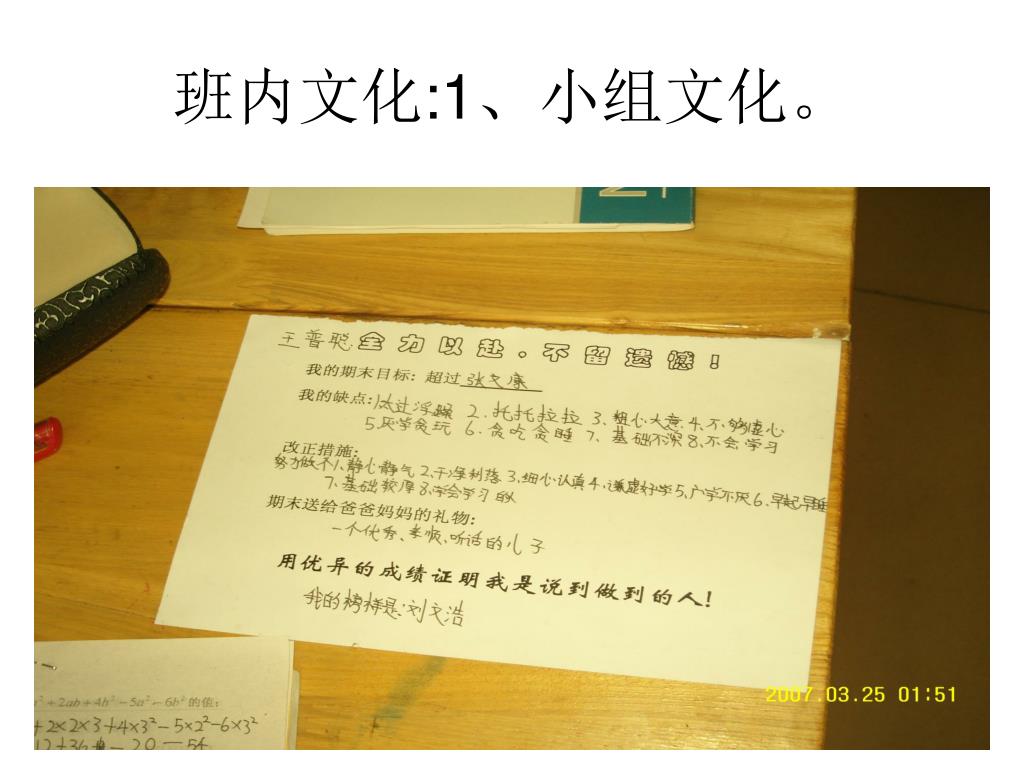 班内文化:1、小组文化。
王普聪 全力以赴。不留遗憾!
我的期末目标: 超过 张文康
我的缺点: 1太过浮躁 2.托托拉拉 3.粗心大意 4.不够虚心
5.厌学贪玩 6.贪吃贪睡 7.基础不深 8.不会学习
改正措施:
努力做个1、静心静气 2、干净利落 3、细心认真 4、谦虚好学 5、广学不厌 6、早起早睡
7、基础较厚 8、学会学习 的人
期末送给爸爸妈妈的礼物:
一个优秀、孝顺、听话的儿子
用优异的成绩证明我是说到做到的人!
我的榜样是:刘文浩
+2ab+4b²-5a²-6b²的值:
+2×2×3+4×3²-5×2²-6×3²
12+36
2007.03.25 01:51